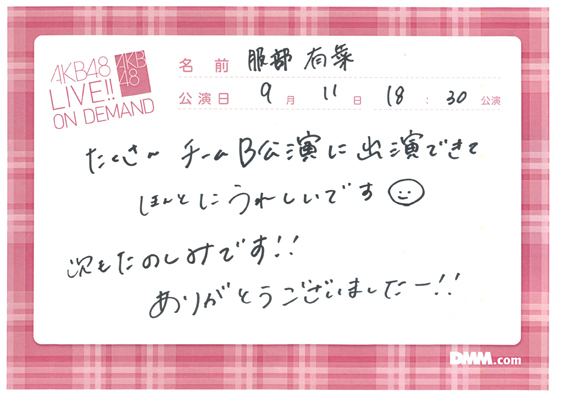 AKB48
LIVE!!
ON DEMAND
AKB
48
名前 服部 有菜
公演日 9月 11日 18:30公演
たくさん チームB公演に出演できて
ほんとにうれしいです
次もたのしみです!!
ありがとうございましたー!!
DMM.com